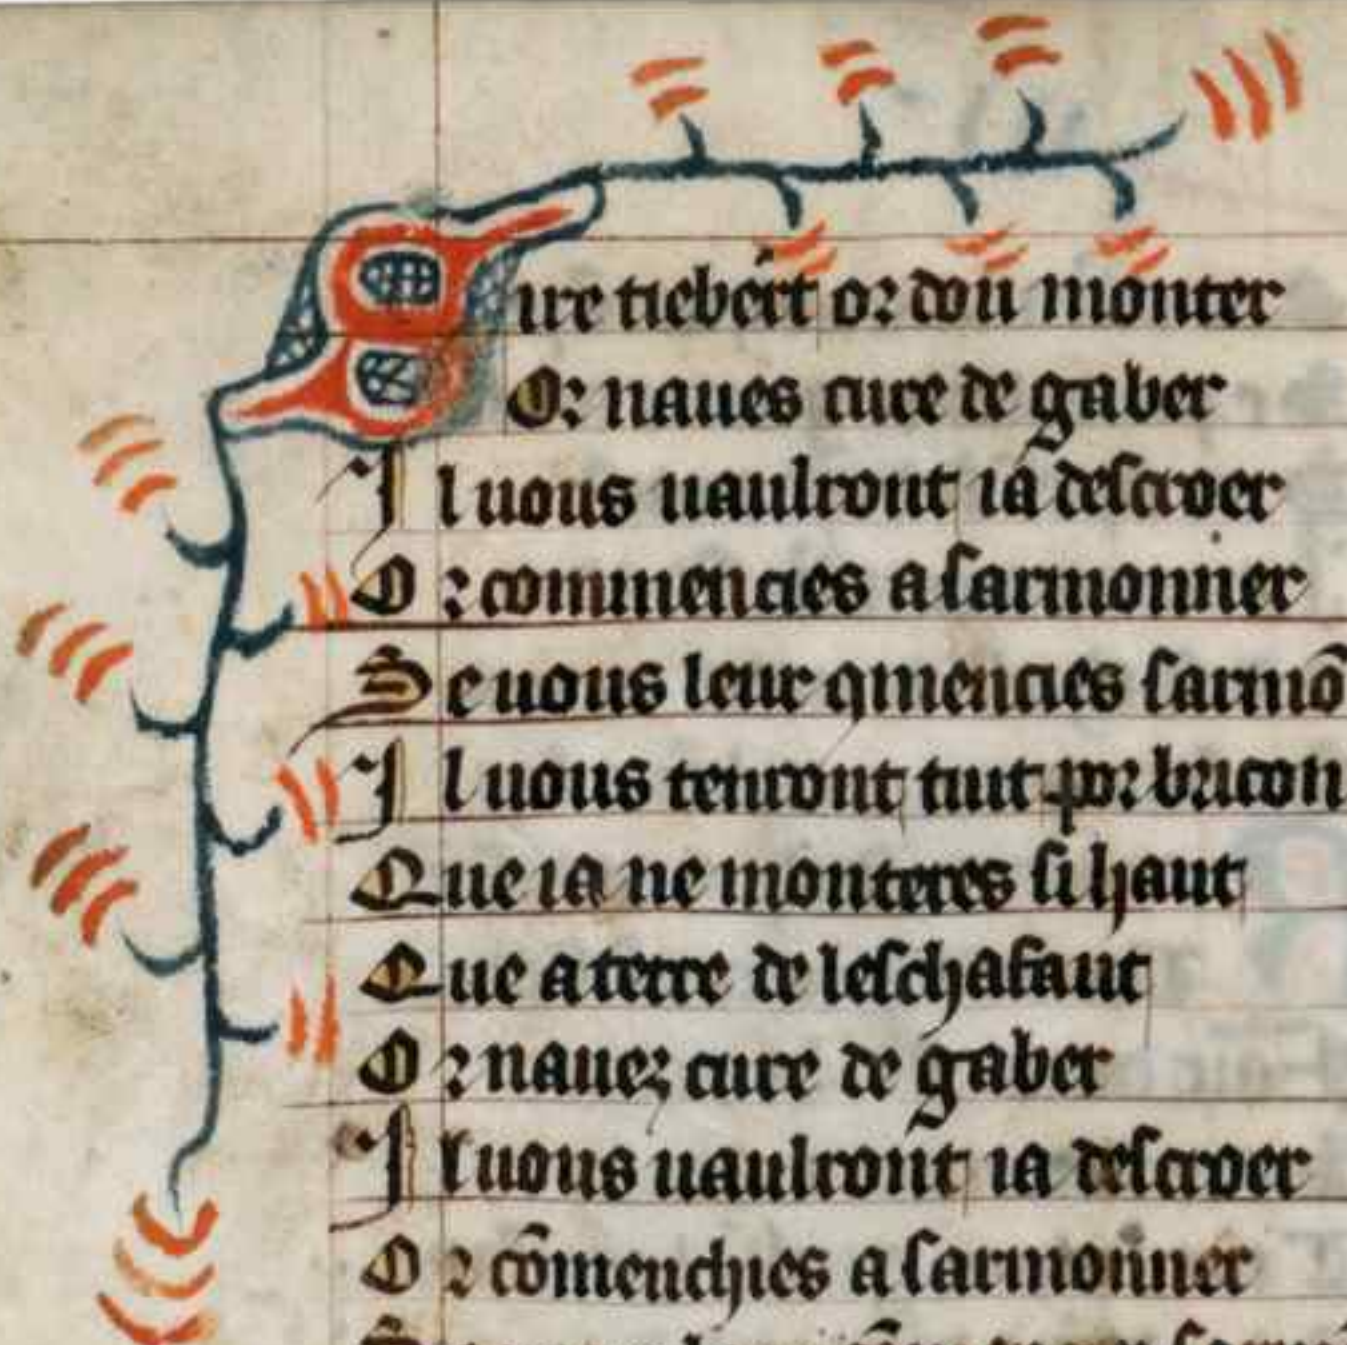 Sire tiebert or dou monter
Or naues cure de gaber
Il uous uaulront ia descroer
Or commencies a sarmonner
Se uous leur ꝯmencies sarmō
Il uous tenront tuit por bricon
Que ia ne monteres si haut
Que a terre de leschafaut
Or nauez cure de gaber
Il uous uaulront ia descroer
Or cōmenchies a sarmonner